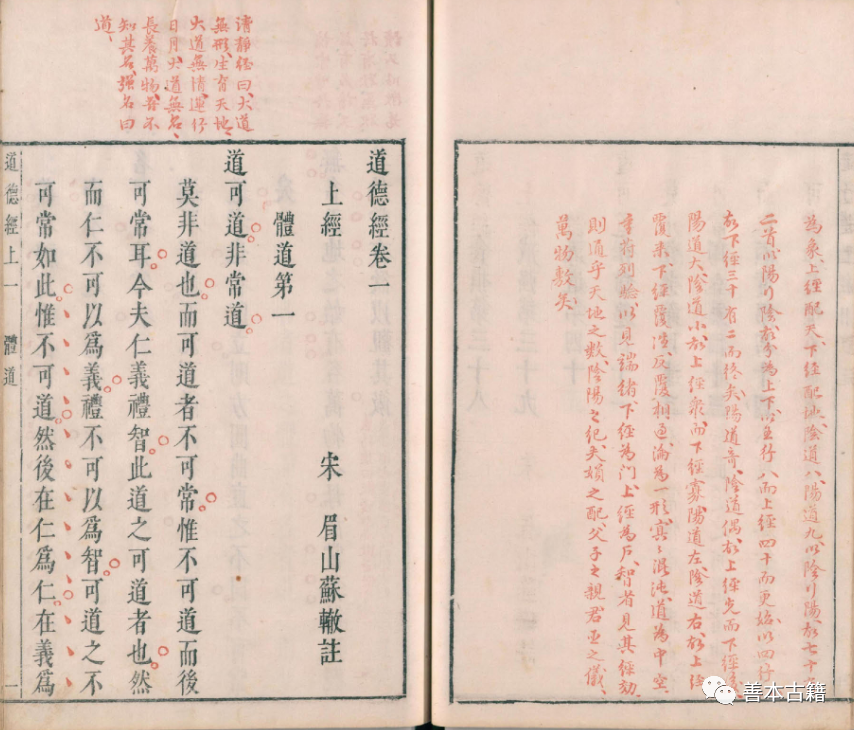 為象、上經配天、下經配地、陰道八、陽道九、以陰行陽、故七十有
二首、以陽行陰、故分為上下、以五行八、而上經四十而更始、以四行
故下經三十有二而終矣、陽道奇、陰道偶、故上經先而下經後、
陽道大、陰道小、故上經眾而下經寡、陽道左、陰道右、故上經
覆來、下經覆往、反覆相過、淪為一形、冥冥混沌、道為中主、
重符列驗、以見端緒、下經為門、上經為戶、智者見其經効、
則通乎天地之數、陰陽之紀、夫婦之配、父子之親、君臣之儀、
萬物敷矣、
清靜經曰、大道
無形、生育天地、
大道無情、運行
日月、大道無名、
長養萬物、吾不
知其名、強名曰
道、
道德經卷一
上經
宋 眉山蘇轍註
體道第一
道可道非常道
莫非道也而可道者不可常惟不可道而後
可常耳今夫仁義禮智此道之可道者也然
而仁不可以為義禮不可以為智可道之不
可常如此惟不可道然後在仁為仁在義為
道德經上一 體道 一
善本古籍